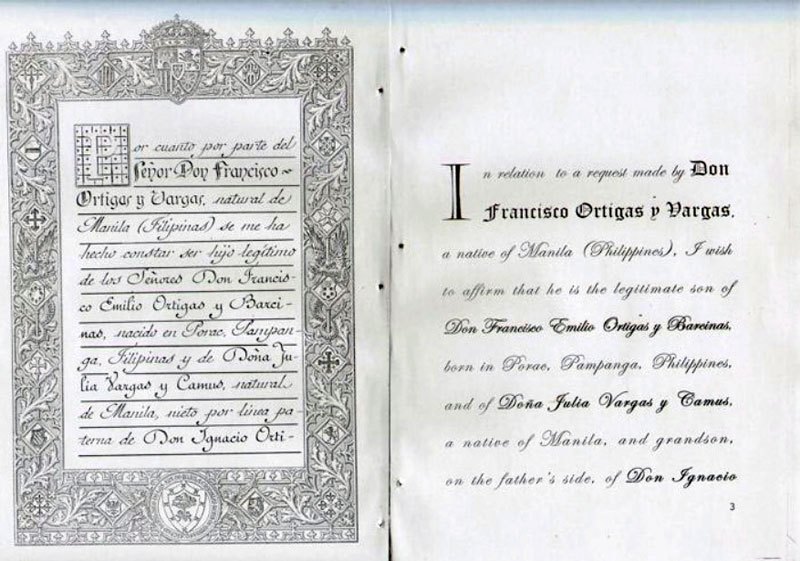 Por cuanto por parte del
Señor Don Francisco
Ortigas y Vargas, natural de
Manila (Filipinas) se me ha
hecho constar ser hijo legítimo
de los Señores Don Francis-
co Emilio Ortigas y Barci-
nas, nacido en Porac, Pampan-
ga, Filipinas y de Doña Ju-
lia Vargas y Camus, natural
de Manila, nieto por línea pa-
terna de Don Ignacio Orti-
In relation to a request made by Don
Francisco Ortigas y Vargas,
a native of Manila (Philippines), I wish
to affirm that he is the legitimate son of
Don Francisco Emilio Ortigas y Barcinas,
born in Porac, Pampanga, Philippines,
and of Doña Julia Vargas y Camus,
a native of Manila, and grandson,
on the father's side, of Don Ignacio
3